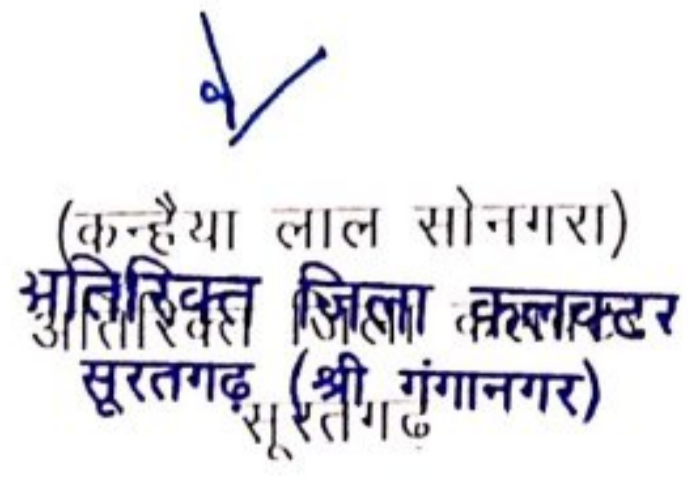 (कन्हैया लाल सोनगरा)
अतिरिक्त जिला कलक्टर
अतिरिक्त जिला कलक्टर
सूरतगढ़ (श्री गंगानगर)
सूरतगढ़